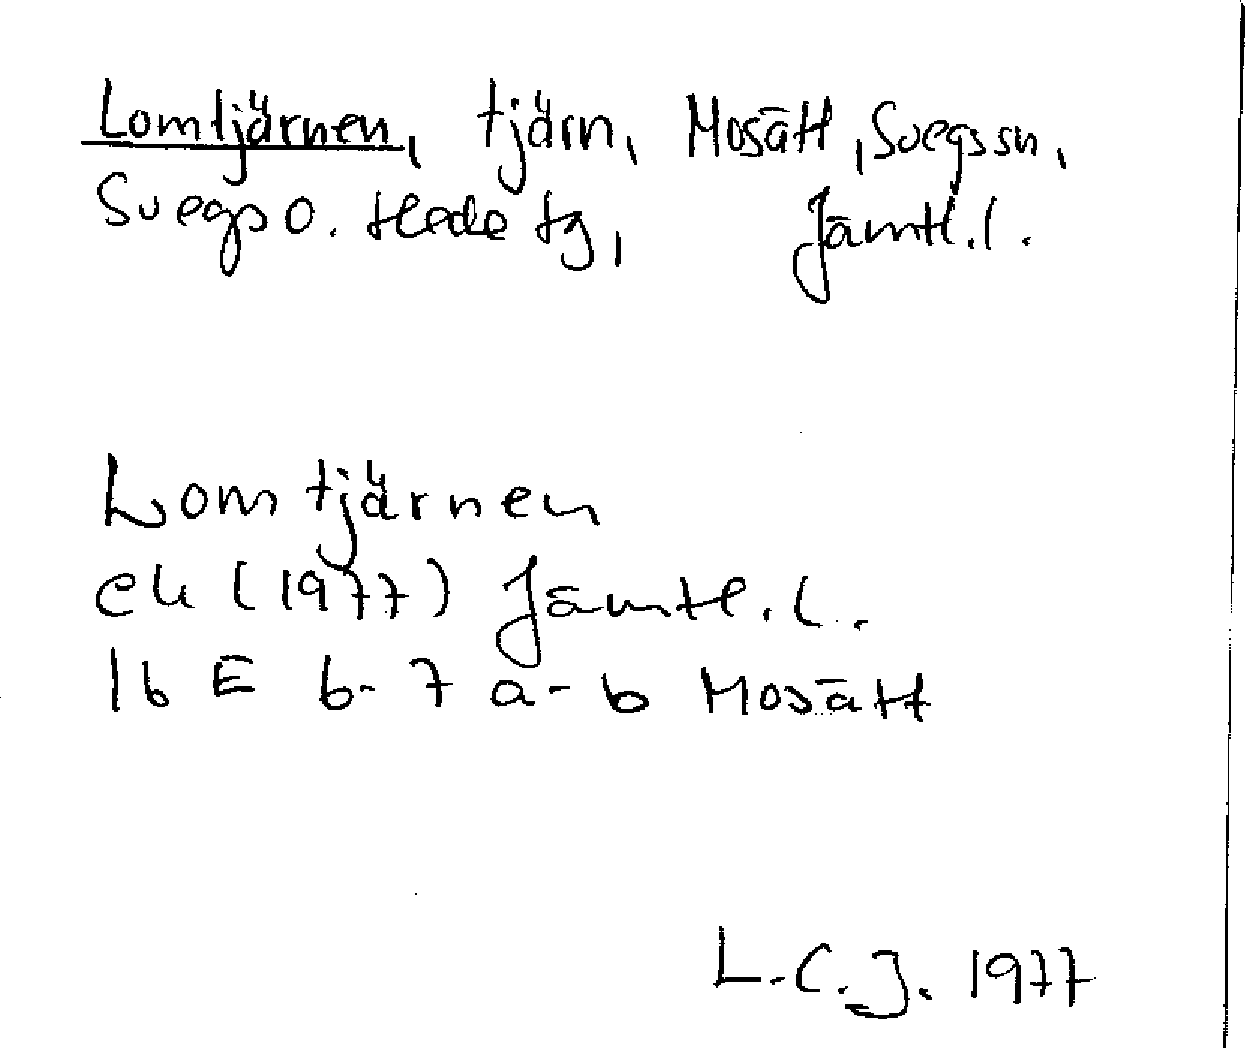 Lomtjärnen, tjärn, Mosätt, Svegs sn,
Svegs o. Hede tg, Jämtl. l.
Lomtjärnen
ek (1977) Jämtl. l.
16 E 6-7 a-b Mosätt
L.C.J. 1977